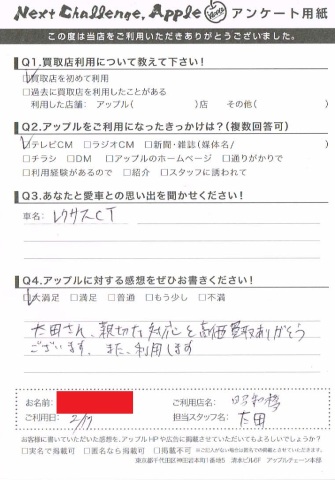 Next Challenge, Apple アンケート用紙
この度は当店をご利用いただきありがとうございました。
Q1.買取店利用について教えて下さい!
□買取店を初めて利用
□過去に買取店を利用したことがある
利用した店舗: アップル( )店 その他( )
Q2.アップルをご利用になったきっかけは?(複数回答可)
□テレビCM □ラジオCM □新聞・雑誌(媒体名/ )
□チラシ □DM □アップルのホームページ □通りがかりで
□利用経験があるので □紹介 □スタッフに誘われて
Q3.あなたと愛車との思い出を聞かせください!
車名: レクサスCT
Q4.アップルに対する感想をぜひお書きください!
□大満足 □満足 □普通 □もう少し □不満
太田さん、親切な対応と高価買取ありがとう
ございます。また、利用します
お名前: ご利用店名: 昭和橋
ご利用日: 2/17 担当スタッフ名: 太田
お客様に書いていただいた感想を、アップルHPや広告に掲載させていただいてもよろしいでしょうか?
□実名で掲載可 □匿名なら掲載可 □掲載不可 ※ご記入がない場合は匿名での掲載とさせていただきます。
東京都千代田区神田岩本町1番地5 清水ビル6F アップルチェーン本部